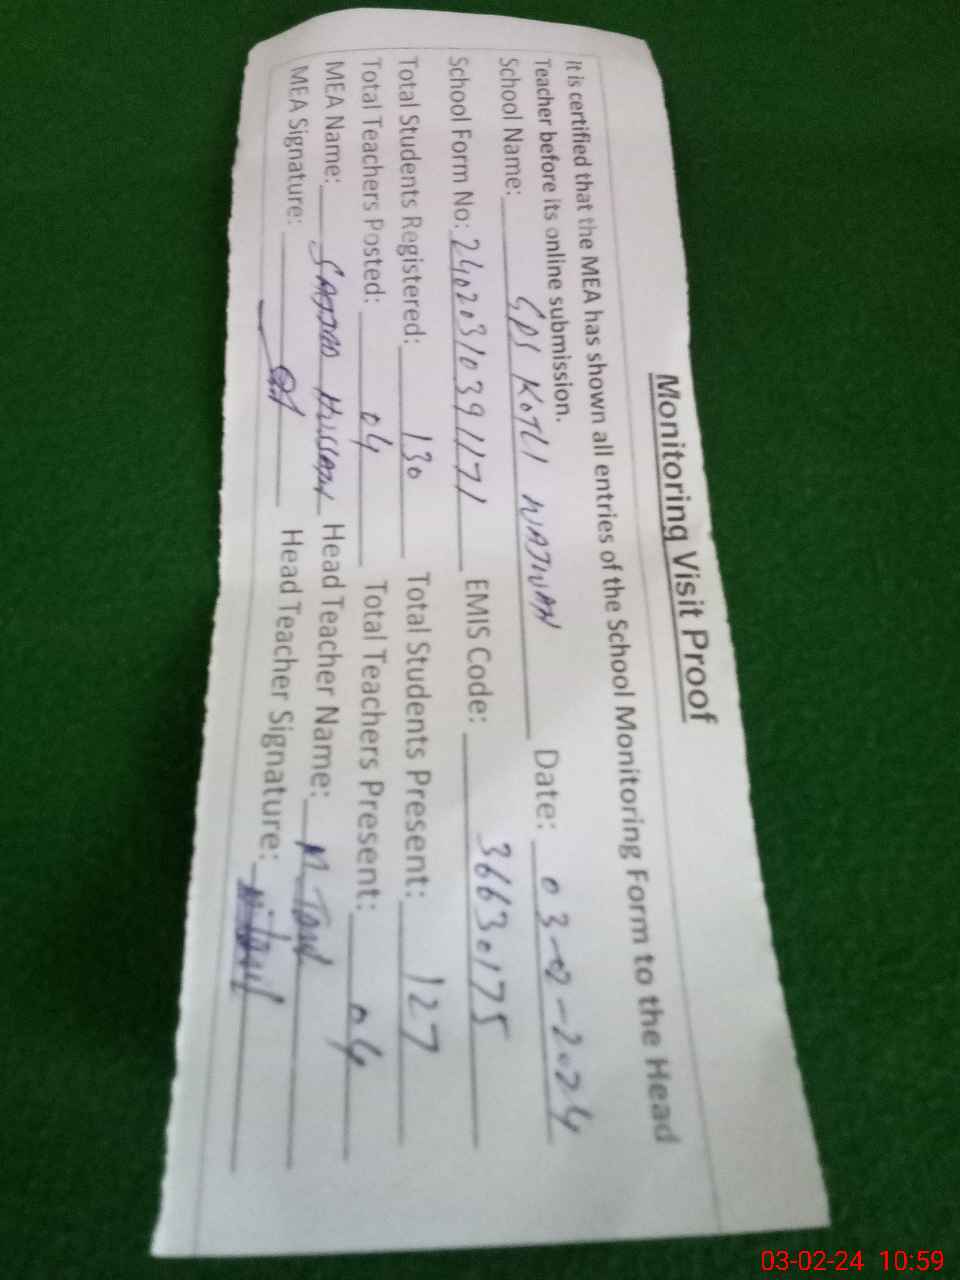 Monitoring Visit Proof
It is certified that the MEA has shown all entries of the School Monitoring Form to the Head
Teacher before its online submission.
School Name: GPS KOTLI WATWAN Date: 03-02-2024
School Form No: 24020310391171 EMIS Code: 36630175
Total Students Registered: 130 Total Students Present: 127
Total Teachers Posted: 04 Total Teachers Present: 04
MEA Name: SAJJAD HUSSAIN Head Teacher Name: M
MEA Signature: Head Teacher Signature:
03-02-24 10:59